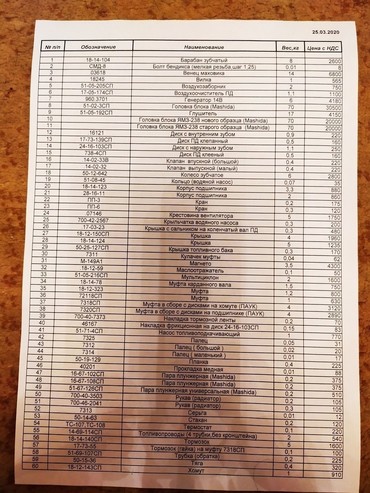 25.03.2020
№ п/п Обозначение Наименование Вес,кг Цена с НДС
1 18-14-104 Барабан зубчатый 8 2600
2 СМД-8 Болт бендикса (мелкая резьба,шаг 1,25) 0,01 6
3 03618 Венец маховика 14 5800
4 18245 Вилка 1 565
5 51-05-205СП Воздухозаборник 2 750
6 17-05-174СП Воздухоочиститель ПД 1,1 1100
7 960.3701 Генератор 14В 6 4180
8 51-02-3СП Головка блока (Mashida) 50 35000
9 51-05-192СП Глушитель 17 4150
10 Головка блока ЯМЗ-238 нового образца (Mashida) 70 20000
11 Головка блока ЯМЗ-238 старого образца (Mashida) 70 20000
12 16121 Диск с внутренним зубом 0,9 220
13 17-73-139СП Диск ПД клепанный 0,5 160
14 24-16-103СП Диск с наружным зубом 1,1 250
15 738-4СП Диск ПД клееный 0,5 160
16 14-02-33В Клапан впускной (большой) 0,4 220
17 14-02-32 Клапан выпускной (малый) 0,4 220
18 50-12-642 Колесо зубчатое 6 2800
19 51-08-45 Кольцо (водяной насос) 0,07 35
20 18-14-123 Корпус подшипника 3,3 880
21 28-16-11 Корпус подшипника 2 860
22 ПП-3 Кран 0,2 175
23 ПП-6 Кран 0,2 120
24 07146 Крестовина вентилятора 5 1750
25 700-42-2567 Крыльчатка водяного насоса 3 200
26 17-03-23 Крышка с сальником на коленчатый вал ПД 0,3 480
27 18-12-150СП Крышка 4 1960
28 18-14-124 Крышка 5 1235
29 50-25-127СП Крышка топливного бака 0,3 170
30 7311 Кулачек муфты 0,04 62
31 М-149А1 Магнето 3,5 4300
32 18-12-59 Маслоотражатель 0,1 50
33 51-05-216СП Мультициклон 2
34 18-14-78 Муфта карданного вала 1,5
35 18-12-323 Муфта 1,2
36 72118СП Муфта 1
37 7318СП Муфта в сборе с дисками на хомуте (ПАУК) 4
38 7320СП Муфта в сборе с дисками на подшипнике (ПАУК) 4 2890
39 700-40-7373 Накладка тормозной ленты 0,2
40 46167 Накладка фрикционная на диск 24-16-103СП 0,15 83
41 51-71-4СП Насос топливоподкачивающий 1 770
42 7325 Палец 0,05 31
43 7312 Палец ( большой ) 0,02 20
44 7314 Палец ( маленький ) 0,01 17
45 50-19-129 Планка 0,4 225
46 40201 Прокладка медная 0,01 88
47 16-67-102СП Пара плунжерная (Mashida) 0,2 375
48 16-67-108СП Пара плунжерная (Mashida) 0,2 375
49 51-67-126СП Пара плунжерная универсальная (Mashida) 0,2 510
50 700-40-3503 Рукав (радиатор) 0,2 385
51 700-46-2041 Рукав (радиатор) 0,3 105
52 7313 Серьга 0,01 12
53 50-14-63 Стакан 0,2
54 ТС-107,ТС-108 Термостат 0,2 220
55 14-69-114СП Топливопроводы (4 трубки,без кронштейна) 0,1
56 18-14-140СП Тормозок 2 540
57 17-73-55 Тормозок (гайка) на муфту 7318СП 1
58 51-69-107СП Трубка (обратка) 0,2
59 50-15-36 Тяга 0,4 320
60 18-12-143СП Хомут 1 910